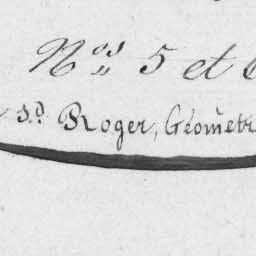 Nos 5 et
sd. Roger, Géomètr